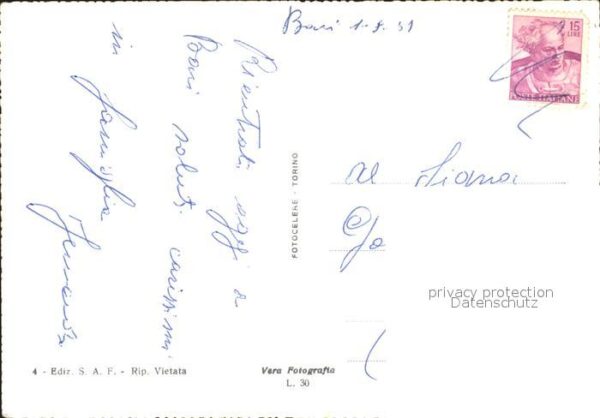 Bari 1-8-
15
LIRE
POSTE ITALIANE
Rientrati oggi a
Bari saluti carissimi
in famiglia
FOTOCELERE - TORINO
Al
privacy protection
Datenschutz
4 - Ediz. S. A. F. - Rip. Vietata
Vera Fotografia
L. 30